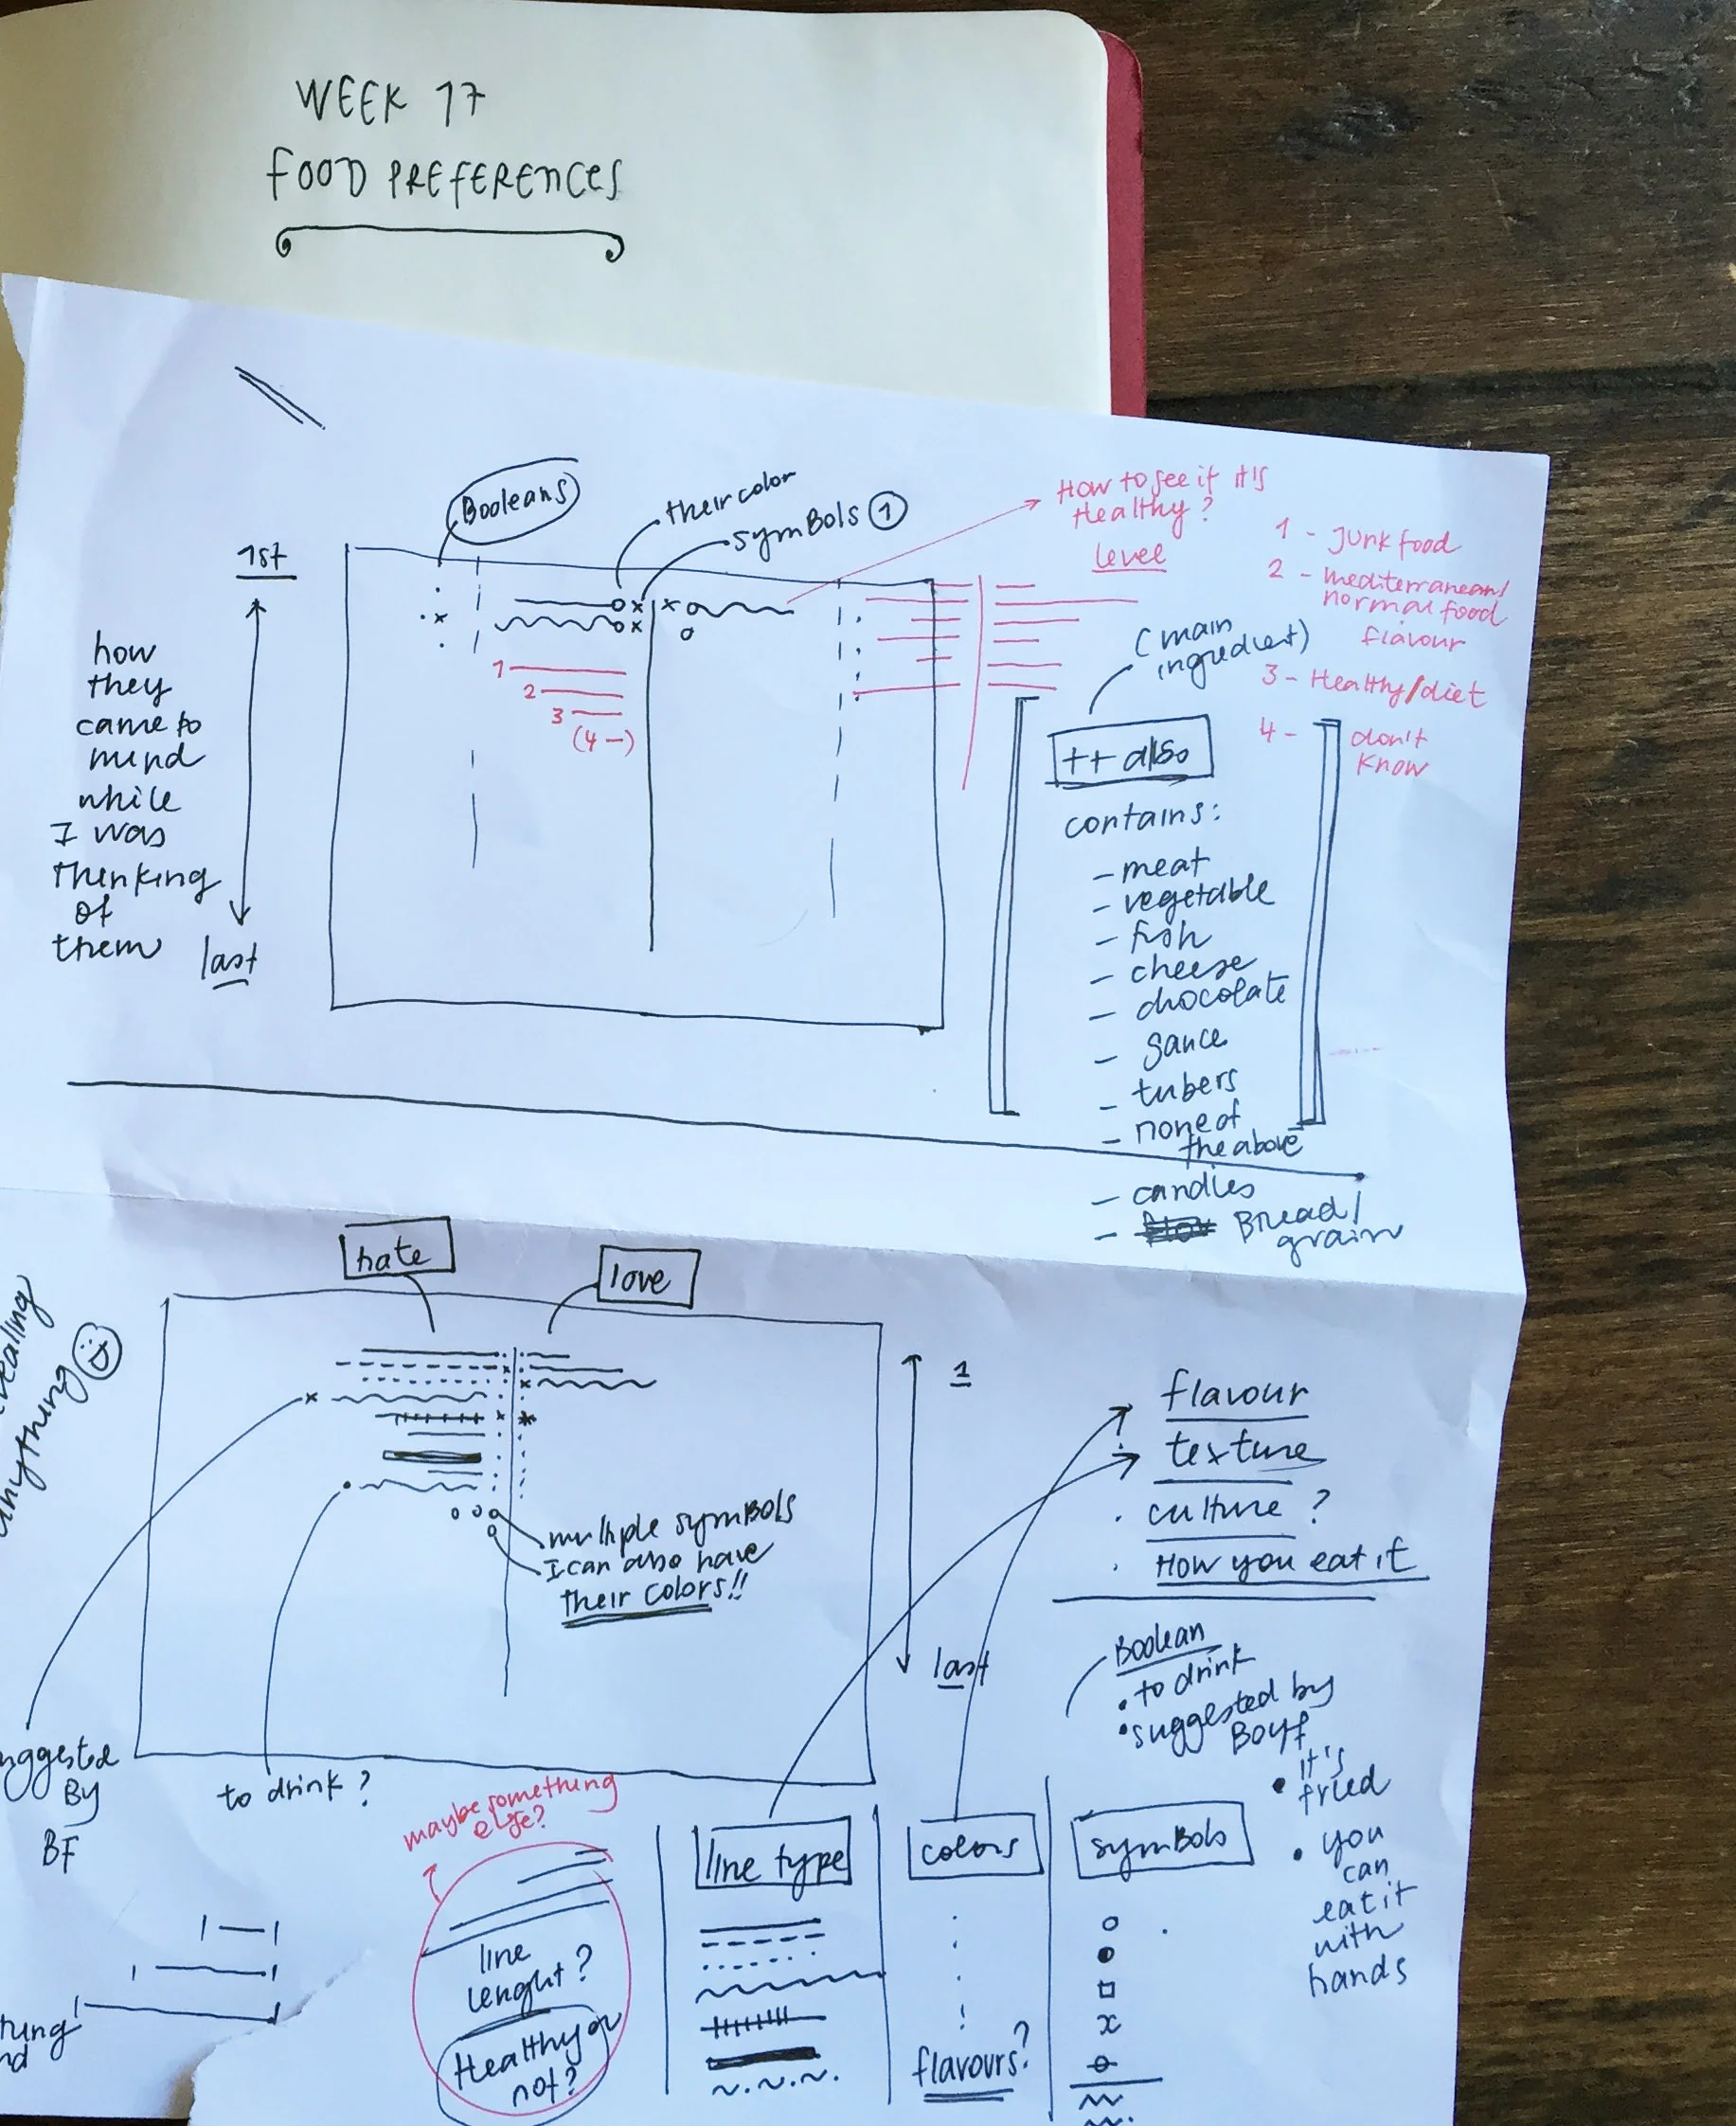 WEEK 17
FOOD PREFERENCES
Booleans
their color
symBols 1
How to see if it's
Healthy?
level
1 - Junk food
2 - mediterranean/
normal food
flavour
3 - Healthy/diet
4 - don't
know
1st
how
they
came to
mind
while
I was
thinking
of
them
last
1
2
3
(4 -)
(main
ingredient)
++ also
contains:
- meat
- vegetable
- fish
- cheese
- chocolate
- sauce
- tubers
- none of
the above
- candles
- Bread/
grain
hate
love
anything
1
last
multiple symBols
I can also have
their colors!!
flavour
texture
culture ?
How you eat it
Boolean
• to drink
• suggested by
Boyf
• it's
fried
• you
can
eat it
with
hands
By
BF
to drink ?
maybe something
else?
line
lenght?
Healthy or
not?
line type
colors
flavours?
symBols